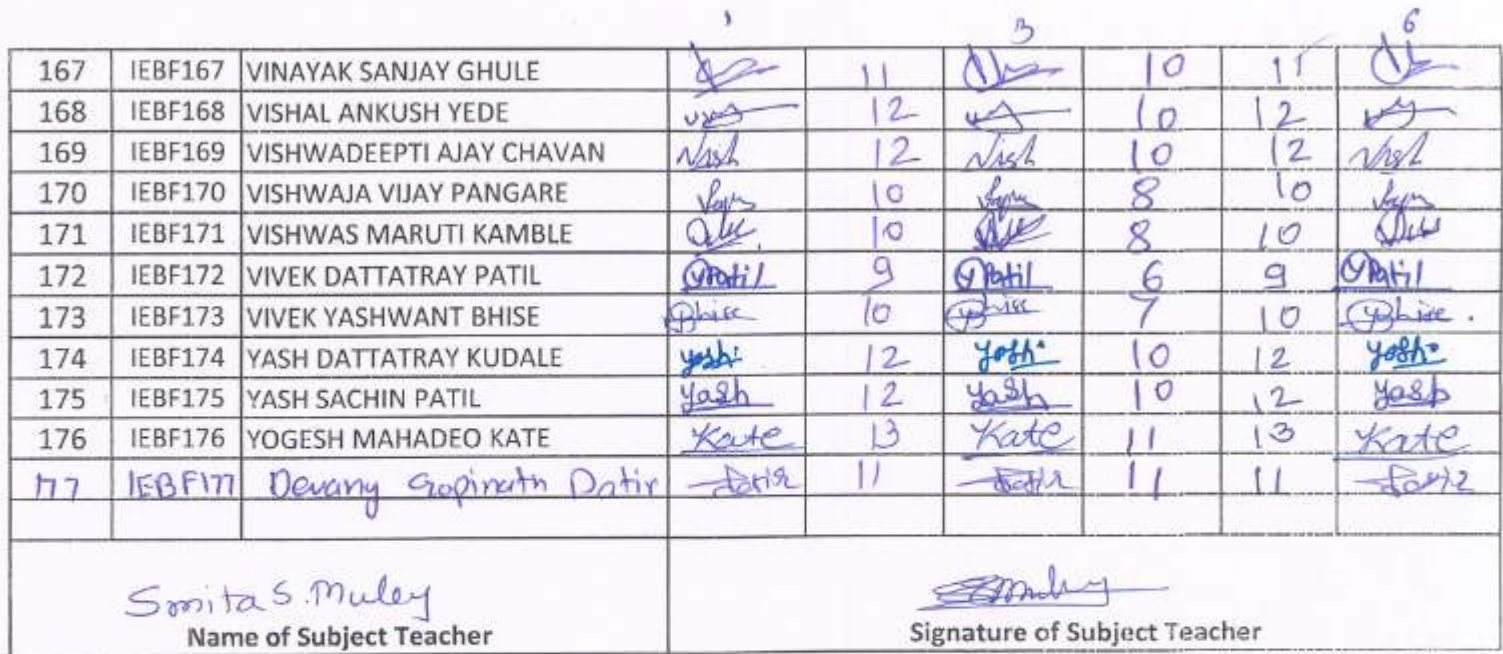 1 3 6
167 IEBF167 VINAYAK SANJAY GHULE 11 10 11
168 IEBF168 VISHAL ANKUSH YEDE 12 10 12
169 IEBF169 VISHWADEEPTI AJAY CHAVAN 12 10 12
170 IEBF170 VISHWAJA VIJAY PANGARE 10 8 10
171 IEBF171 VISHWAS MARUTI KAMBLE 10 8 10
172 IEBF172 VIVEK DATTATRAY PATIL VPatil 9 VPatil 6 9 VPatil
173 IEBF173 VIVEK YASHWANT BHISE Bhise 10 Bhise 7 10 Bhise.
174 IEBF174 YASH DATTATRAY KUDALE Yash 12 Yash 10 12 Yash
175 IEBF175 YASH SACHIN PATIL Yash 12 Yash 10 12 Yash
176 IEBF176 YOGESH MAHADEO KATE Kate 13 Kate 11 13 Kate
177 IEBF177 Devang Gopinath Datir 11 11 11
Smita S. Muley
Name of Subject Teacher Signature of Subject Teacher